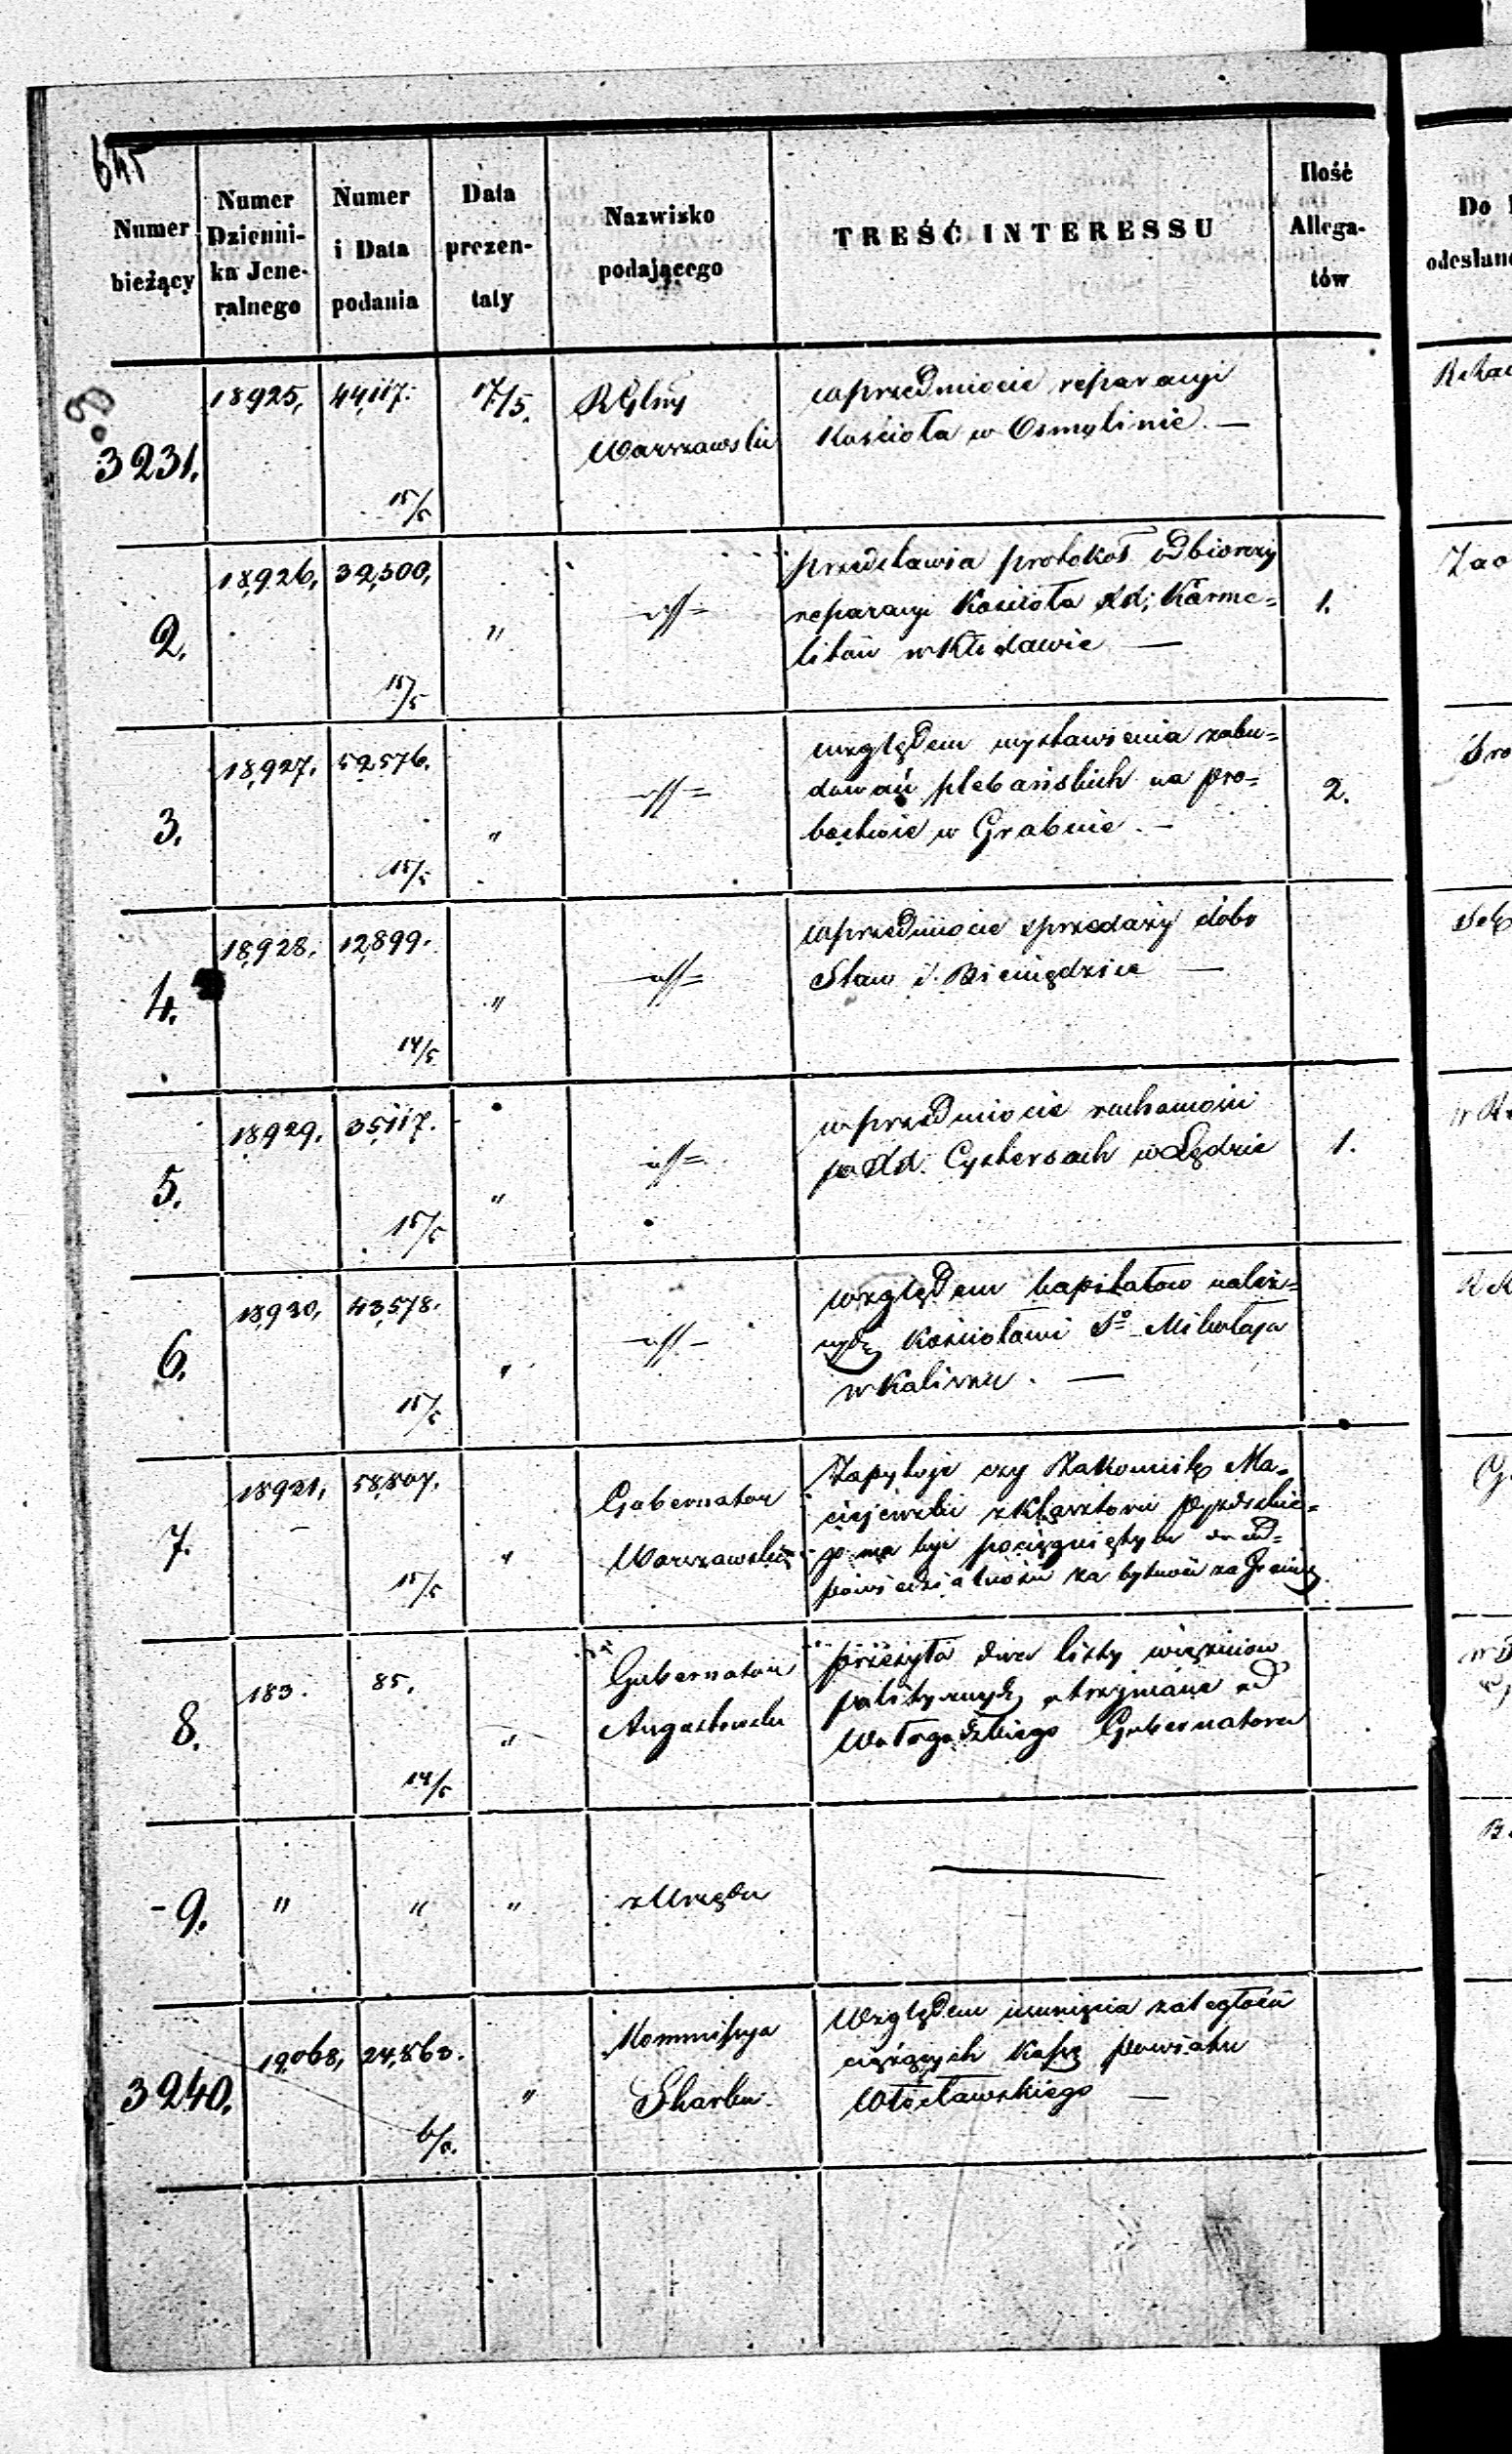 645
Numer bieżący
Numer Dzienni-ka Jene-ralnego
Numer i Data podania
Data prezen-taty
Nazwisko podającego
TREŚĆ INTERESSU
Ilość Allega-tów
Do
odesłan
3231.
18925,
44,117.
15/5
17/5.
RGlny
Warszawski
wprzedmiocie reparacyi
Kościoła w Osmolinie. —
2.
18,926,
32,500,
15/5
"
przedstawia protokoł odbiorczy
reparacyi Kościoła XX; Karme=
litów w Kłodawie —
1.
3.
18,927.
52,576.
15/5
"
względem wystawienia zabu=
dowań plebańskich na pro=
bostwie w Grabnie. —
2.
4.
18,928.
12,899.
14/5
"
wprzedmiocie sprzedaży dóbr
Staw i Bieniędzice —
5.
18,929.
35,117.
15/5
"
w przedmiocie ruchomości
po XX. Cystersach w Lędzie
1.
6.
18,930,
43,578.
15/5
"
względem kapitałów należ=
nych Kościołowi Sº Mikołaja
w Kaliszu. —
7.
18921,
58,807.
15/5
"
Gubernator
Warszawski
Zapytuje czy Zakonnik Ma=
ciejewski z Klasztoru Pyzdrskie=
go ma być pociągniętym do od=
powiedzialności za bytność za granicą.
8.
183.
85.
14/5
"
Gubernator
Augustowski
przesyła dwa listy więźniów
politycznych otrzymane od
Wołogodzkiego Gubernatora
-9.
"
"
"
z Urzędu
3240.
19,068,
24,863.
6/5.
"
Kommissya
Skarbu.
Względem usunięcia zaległości
ciążących Kassę Powiatu
Włocławskiego —